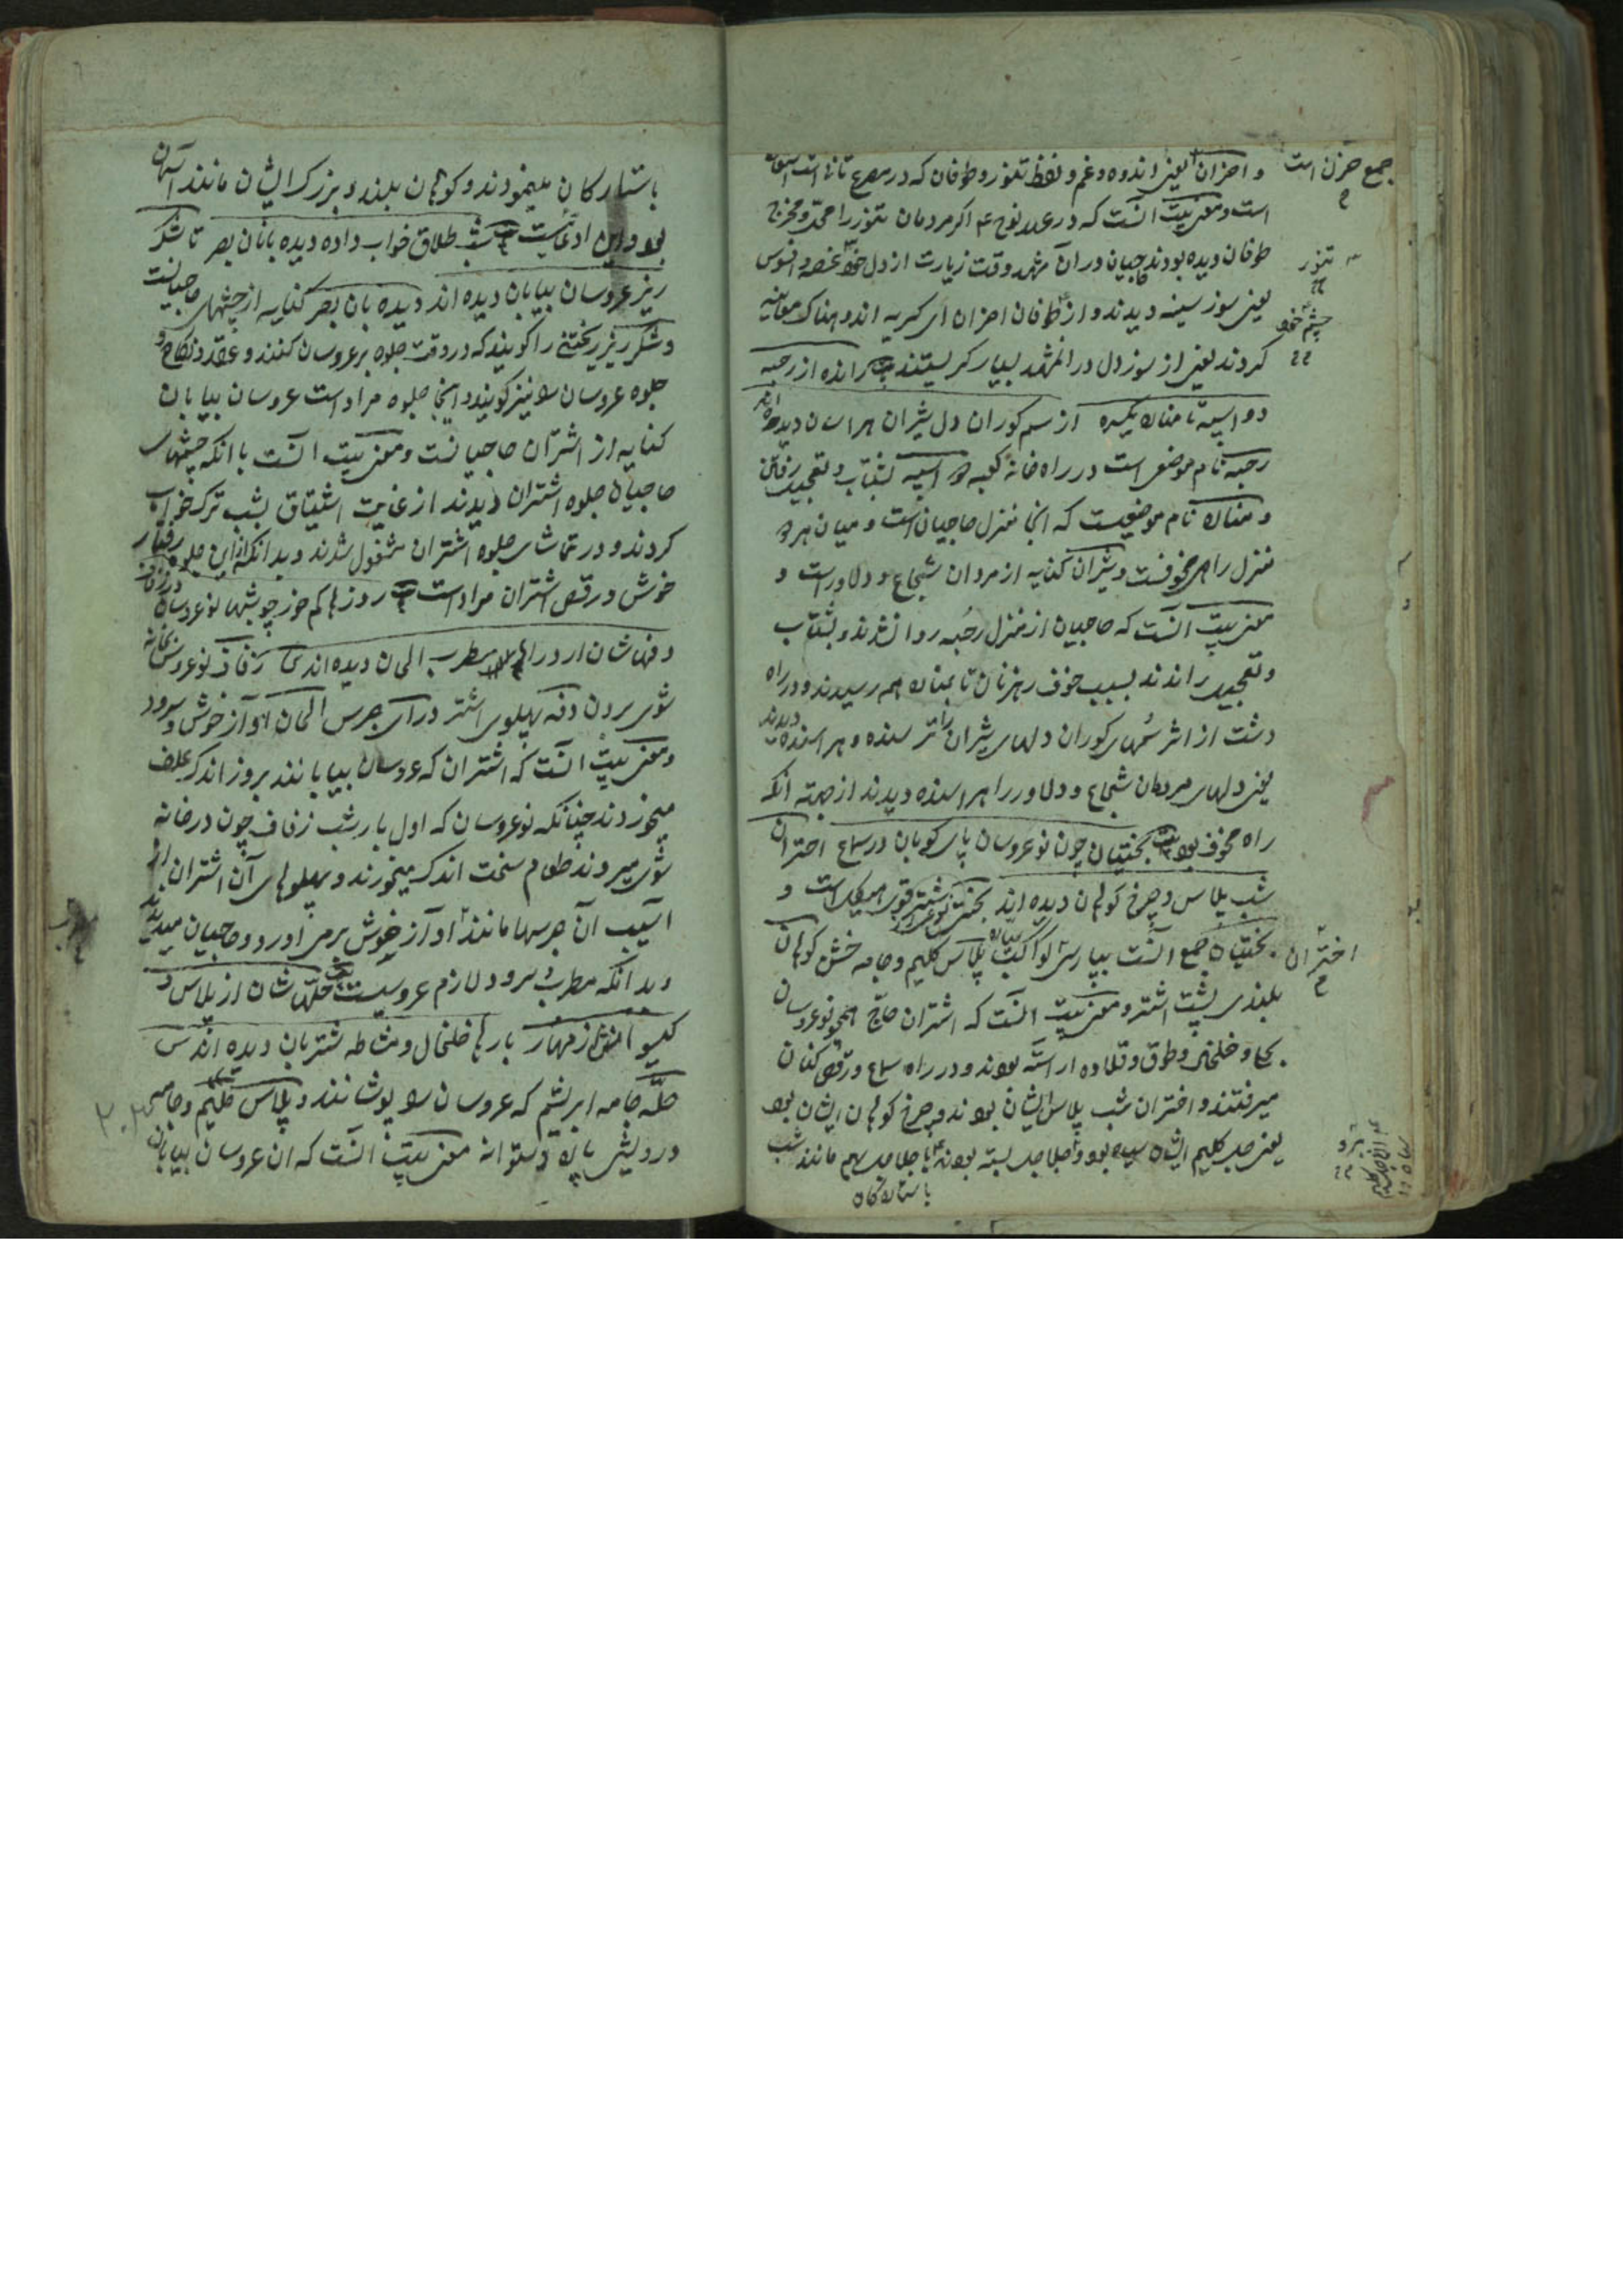 و احزان یعنی اندوه و غم و لفظ تنور و طوفان که در مصرع ثانی است
جمع حزن است
است و معنی بیت آنست که در عهد نوح ع اگر مردمان تنور را محل و مخرج
طوفان دیده بودند حاجیان در آن مشهد وقت زیارت از دل خود غصه و افسوس
تنور
یعنی سوز سینه دیدند و از طوفان احزان ای گریه اندوهناک معاینه
چشم خود
کردند یعنی از سوز دل در آن مشهد بسیار گریستند رانده از رحبه
دو اسپه تا مناره یکسره از سم گوران دل شیران هراسان دیده اند
رحبه نام موضعی است در راه خانه کعبه دو اسپه بشتاب و تعجیل رفتن
و مناره نام موضعیست که آنجا منزل حاجیان است و میان هر دو
منزل راه مخوفست و شیران کنایه از مردان شجاع و دلاور است و
معنی بیت آنست که حاجیان از منزل رحبه روان شدند و بشتاب
و تعجیل راندند بسبب خوف رهزنان تا بمناره هم رسیدند و در راه
دشت از اثر سمهای گوران دلهای شیران را ترسنده و هراسنده دیدند
یعنی دلهای مردمان شجاع و دلاور را هراسنده دیدند از جهت آنکه
راه مخوف بود بیت بختیان چون نوعروسان پای کوبان در سماع اختران
شب پلاس و چرخ کوهان دیده اند بختی شتر قوی هیکل است و
بختیان جمع آنست کواکب پلاس گلیم و جامه خشن کوهان
اختران
بلندی پشت اشتر و معنی بیت آنست که اشتران حاج همچو نوعروسان
بحلی و خلخال و طوق و قلاده آراسته بودند و در راه سماع و رقص کنان
میرفتند و اختران شب پلاس ایشان بودند و چرخ کوهان ایشان بود
یعنی جل گلیم ایشان سیاه بود و جلاجل بسته بودند با جلاجل سیم مانند شب
با ستارگان
با ستارگان مینمودند و کوهان بلند و بزرگ ایشان مانند آسمان
بود و این ادعاست شب طلاق خواب داده دیده بانان بصر تا شکر
ریز عروسان بیابان دیده اند دیده بان بصر کنایه از چشمهای حاجیانست
و شکر ریز ریختنی را گویند که در وقت جلوه بر عروسان کنند و عقد و نکاح و
جلوه عروسان را نیز گویند و اینجا جلوه مراد است عروسان بیابان
کنایه از اشتران حاجیانست و معنی بیت آنست با آنکه چشمهای
حاجیان جلوه اشتران دیدند از غایت اشتیاق بشب ترک خواب
کردند و در تماشای جلوه اشتران مشغول شدند و بدانکه از این جلوه رفتار
خوش و رقص اشتران مراد است روزها کم خور چو شبها نوعروسان در زفاف
زفاف نوعروس بخانه
شوی بردن دفه پهلوی اشتر درای جرس الحان آواز خوش و سرود
و معنی بیت آنست که اشتران که عروسان بیابانند بروز اندک علف
میخوردند چنانکه نوعروسان که اول بار شب زفاف چون در خانه
شوی میروند طعام سخت اندک میخورند و پهلوهای آن اشتران از
آسیب آن جرسها مانند آواز خوش برمی آورد و حاجیان میدیدند
و بدانکه مطرب و سرود لازم عروسیست بیت حله شان از پلاس و
گیسو از مهار بارها خلخال و مشاطه شتربان دیده اند
حله جامه ابریشم که عروسان را پوشانند و پلاس گلیم و جامه
معنی بیت آنست که آن عروسان بیابان